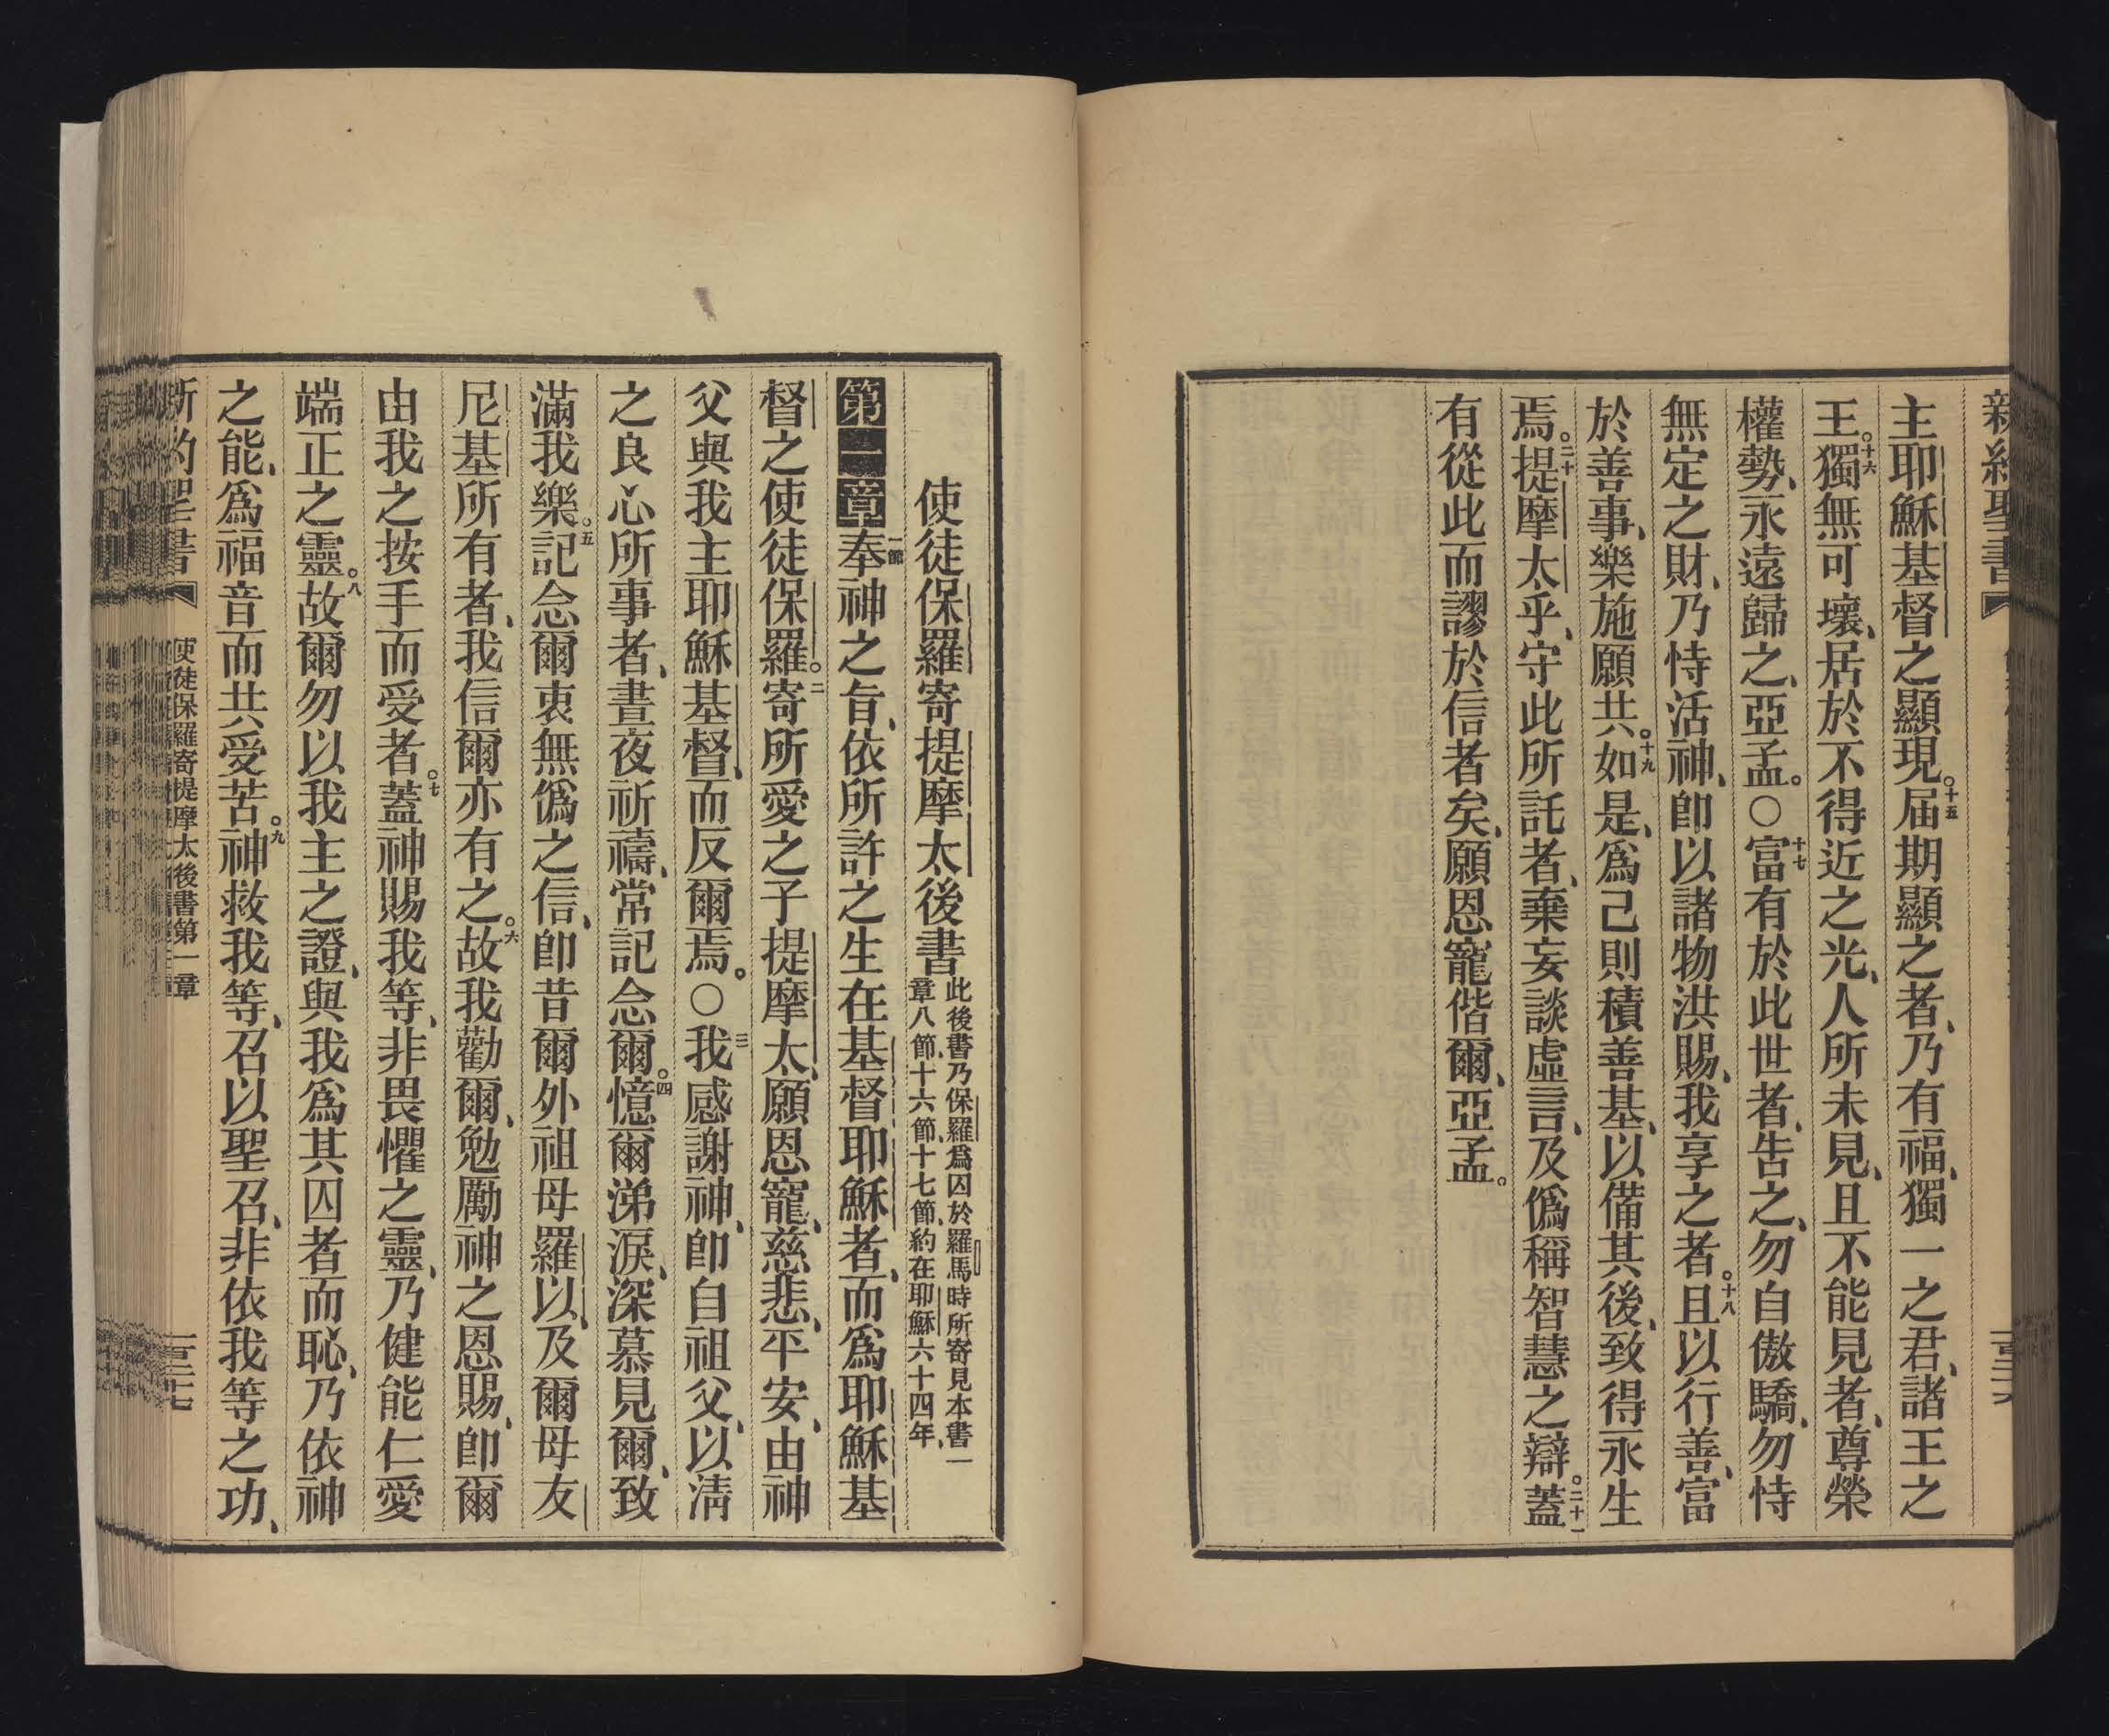 新約聖書
主耶穌基督之顯現。十五屆期顯之者、乃有福、獨一之君、諸王之
王。十六獨無可壞、居於不得近之光、人所未見、且不能見者、尊榮
權勢、永遠歸之、亞孟。○十七富有於此世者、告之、勿自傲驕、勿恃
無定之財、乃恃活神、卽以諸物洪賜、我享之者。十八且以行善、富
於善事、樂施願共。十九如是、爲己則積善基、以備其後、致得永生
焉。二十提摩太乎、守此所託者、棄妄談虛言、及僞稱智慧之辯。二十一蓋
有從此而謬於信者矣、願恩寵偕爾、亞孟。
使徒保羅寄提摩太後書
此後書乃保羅爲囚於羅馬時所寄見本書一
章八節、十六節、十七節、約在耶穌六十四年、
第一章一節奉神之旨、依所許之生在基督耶穌者、而爲耶穌基
督之使徒保羅。二寄所愛之子提摩太、願恩寵、慈悲、平安、由神
父與我主耶穌基督、而反爾焉。○三我感謝神、卽自祖父、以淸
之良心所事者、晝夜祈禱、常記念爾。四憶爾涕淚、深慕見爾、致
滿我樂。五記念爾衷無僞之信、卽昔爾外祖母羅以、及爾母友
尼基所有者、我信爾亦有之。六故我勸爾、勉勵神之恩賜、卽爾
由我之按手而受者。七蓋神賜我等、非畏懼之靈、乃健能仁愛
端正之靈。八故爾勿以我主之證、與我爲其囚者而恥、乃依神
之能、爲福音而共受苦。九神救我等、召以聖召、非依我等之功、
新約聖書
使徒保羅寄提摩太後書第一章
一百三十七